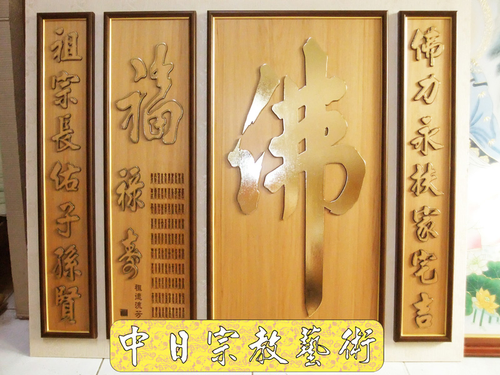 佛力永扶家宅吉
佛
福
祿壽
祖宗長佑子孫賢
中日宗教藝術